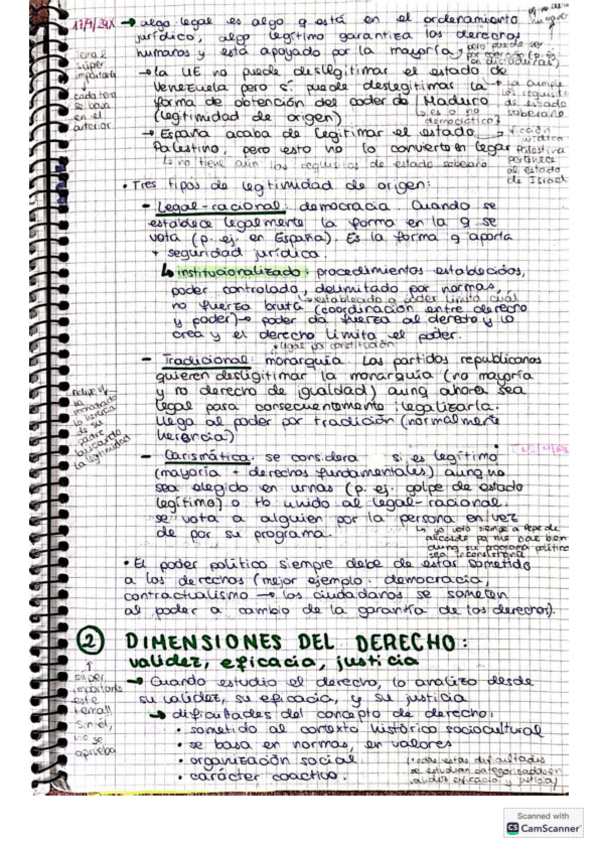 17/9/24
→ algo legal es algo q está en el ordenamiento
jurídico, algo legítimo garantiza los derechos
humanos y está apoyado por la mayoría,
pero puede ser
por
en dictaduras)
súper
importante
cada tema
se basa
en el
anterior
→ la UE no puede deslegitimar el estado de
Venezuela pero sí puede deslegitimar la
forma de obtención del poder de Maduro
(legitimidad de origen)
→ es o no
democrático?
cumple
los requisitos
de estado
soberano
→ España acaba de legitimar el estado
Palestino, pero esto no lo convierte en legal
↳ no tiene aún los requisitos de estado soberano
Palestina
pertenece
al estado
de Israel
• Tres tipos de legitimidad de origen:
- Legal-racional: democracia. Cuando se
establece legalmente la forma en la q se
vota (p. ej. en España). Es la forma q aporta
+ seguridad jurídica.
↳ institucionalizado: procedimientos establecidos,
poder controlado, delimitado por normas,
no fuerza bruta (coordinación entre derecho
y poder) → poder da fuerza al derecho y lo
crea y el derecho limita el poder.
• legal por constitución
- Tradicional: monarquía. Los partidos republicanos
quieren desligitimar la monarquía (no mayoría
y no derecho de igualdad) aunq ahora sea
legal para consecuentemente ilegalizarla.
Llega al poder por tradición (normalmente
herencia)
Felipe VI
ha
heredado
la
de su
padre
buscando
la legitimidad
- Carismática: se considera si es legítimo
(mayoría + derechos fundamentales) aunq no
sea elegido en urnas (p. ej. golpe de estado
legítimo) o tb unido al legal-racional.
se vota a alguien por la persona en vez
de por su programa.
↳ yo voto siempre a Pepe de
alcalde pq me cae bien
aunq su programa político
sea
• El poder político siempre debe de estar sometido
a los derechos (mejor ejemplo: democracia,
contractualismo → los ciudadanos se someten
al poder a cambio de la garantía de los derechos).
② DIMENSIONES DEL DERECHO:
validez, eficacia, justicia
↑
súper
importante
este
tema!!
Sin él,
no se
aprueba
→ Cuando estudio el derecho, lo analizo desde
su validez, su eficacia, y su justicia
↳ dificultades del concepto de derecho:
• sometido al contexto histórico sociocultural
• se basa en normas, en valores
• organización social
• carácter coactivo.
todas estas dificultades
se estudian categorizadas en
validez, eficacia y justicia)
Scanned with
CS CamScanner